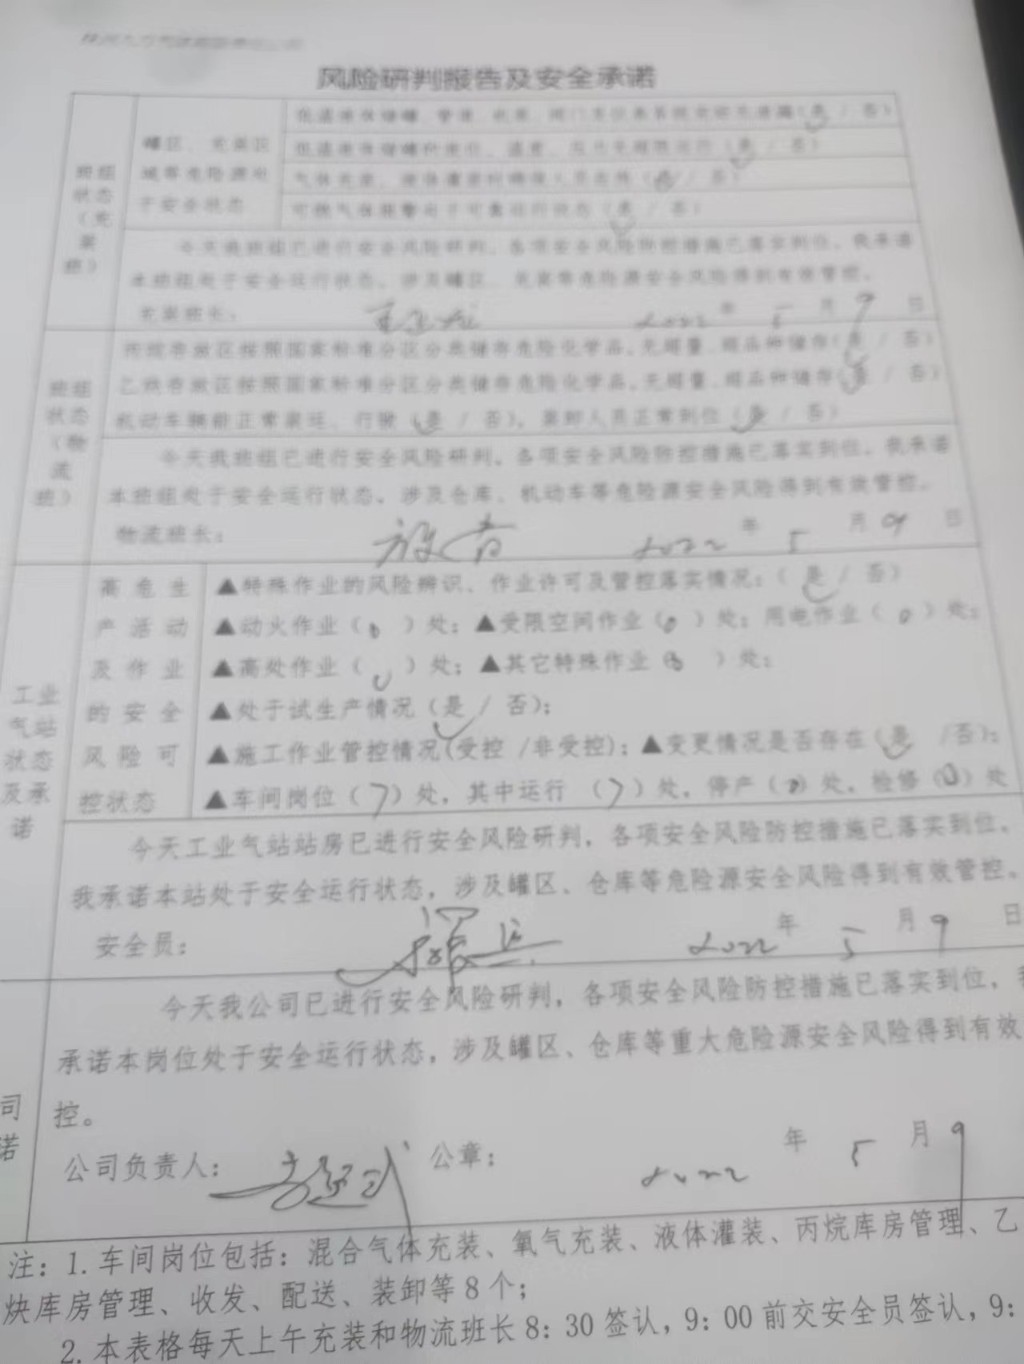 风险研判报告及安全承诺
班组状态（充装班）
罐区、充装区域等危险源处于安全状态
低温液体储罐、管道、机泵、阀门及仪表（是／否）
低温液体储罐的液位、温度、压力（是／否）
气体充装、液体灌装（是／否）
可燃气体报警处于可靠运行状态（是／否）
今天我班组已进行安全风险研判，各项安全风险防控措施已落实到位，我承诺
本班组处于安全运行状态，涉及罐区、充装等危险源安全风险得到有效管控。
充装班长： 2022年5月9日
班组状态（物流班）
丙烷存放区按照国家标准分区分类储存危险化学品，无超量、超品种储存（是／否）
乙炔存放区按照国家标准分区分类储存危险化学品，无超量、超品种储存（是／否）
机动车辆能正常装运、行驶（是／否），装卸人员正常到位（是／否）
今天我班组已进行安全风险研判，各项安全风险防控措施已落实到位，我承诺
本班组处于安全运行状态，涉及仓库、机动车等危险源安全风险得到有效管控。
物流班长： 2022年5月9日
工业气站状态及承诺
高危生产活动及作业的安全风险可控状态
▲特殊作业的风险辨识、作业许可及管控落实情况：（是／否）
▲动火作业（0）处；▲受限空间作业（0）处；用电作业（0）处；
▲高处作业（）处；▲其它特殊作业（0）处；
▲处于试生产情况（是／否）；
▲施工作业管控情况（受控/非受控）；▲变更情况是否存在（是/否）；
▲车间岗位（7）处，其中运行（7）处，停产（0）处，检修（0）处
今天工业气站站房已进行安全风险研判，各项安全风险防控措施已落实到位，
我承诺本站处于安全运行状态，涉及罐区、仓库等危险源安全风险得到有效管控。
安全员： 2022年5月9日
司
诺
今天我公司已进行安全风险研判，各项安全风险防控措施已落实到位，
承诺本岗位处于安全运行状态，涉及罐区、仓库等重大危险源安全风险得到有效
控。
公司负责人： 公章： 2022年5月9
注：1.车间岗位包括：混合气体充装、氧气充装、液体灌装、丙烷库房管理、乙
炔库房管理、收发、配送、装卸等8个；
2.本表格每天上午充装和物流班长8：30签认，9：00前交安全员签认，9：